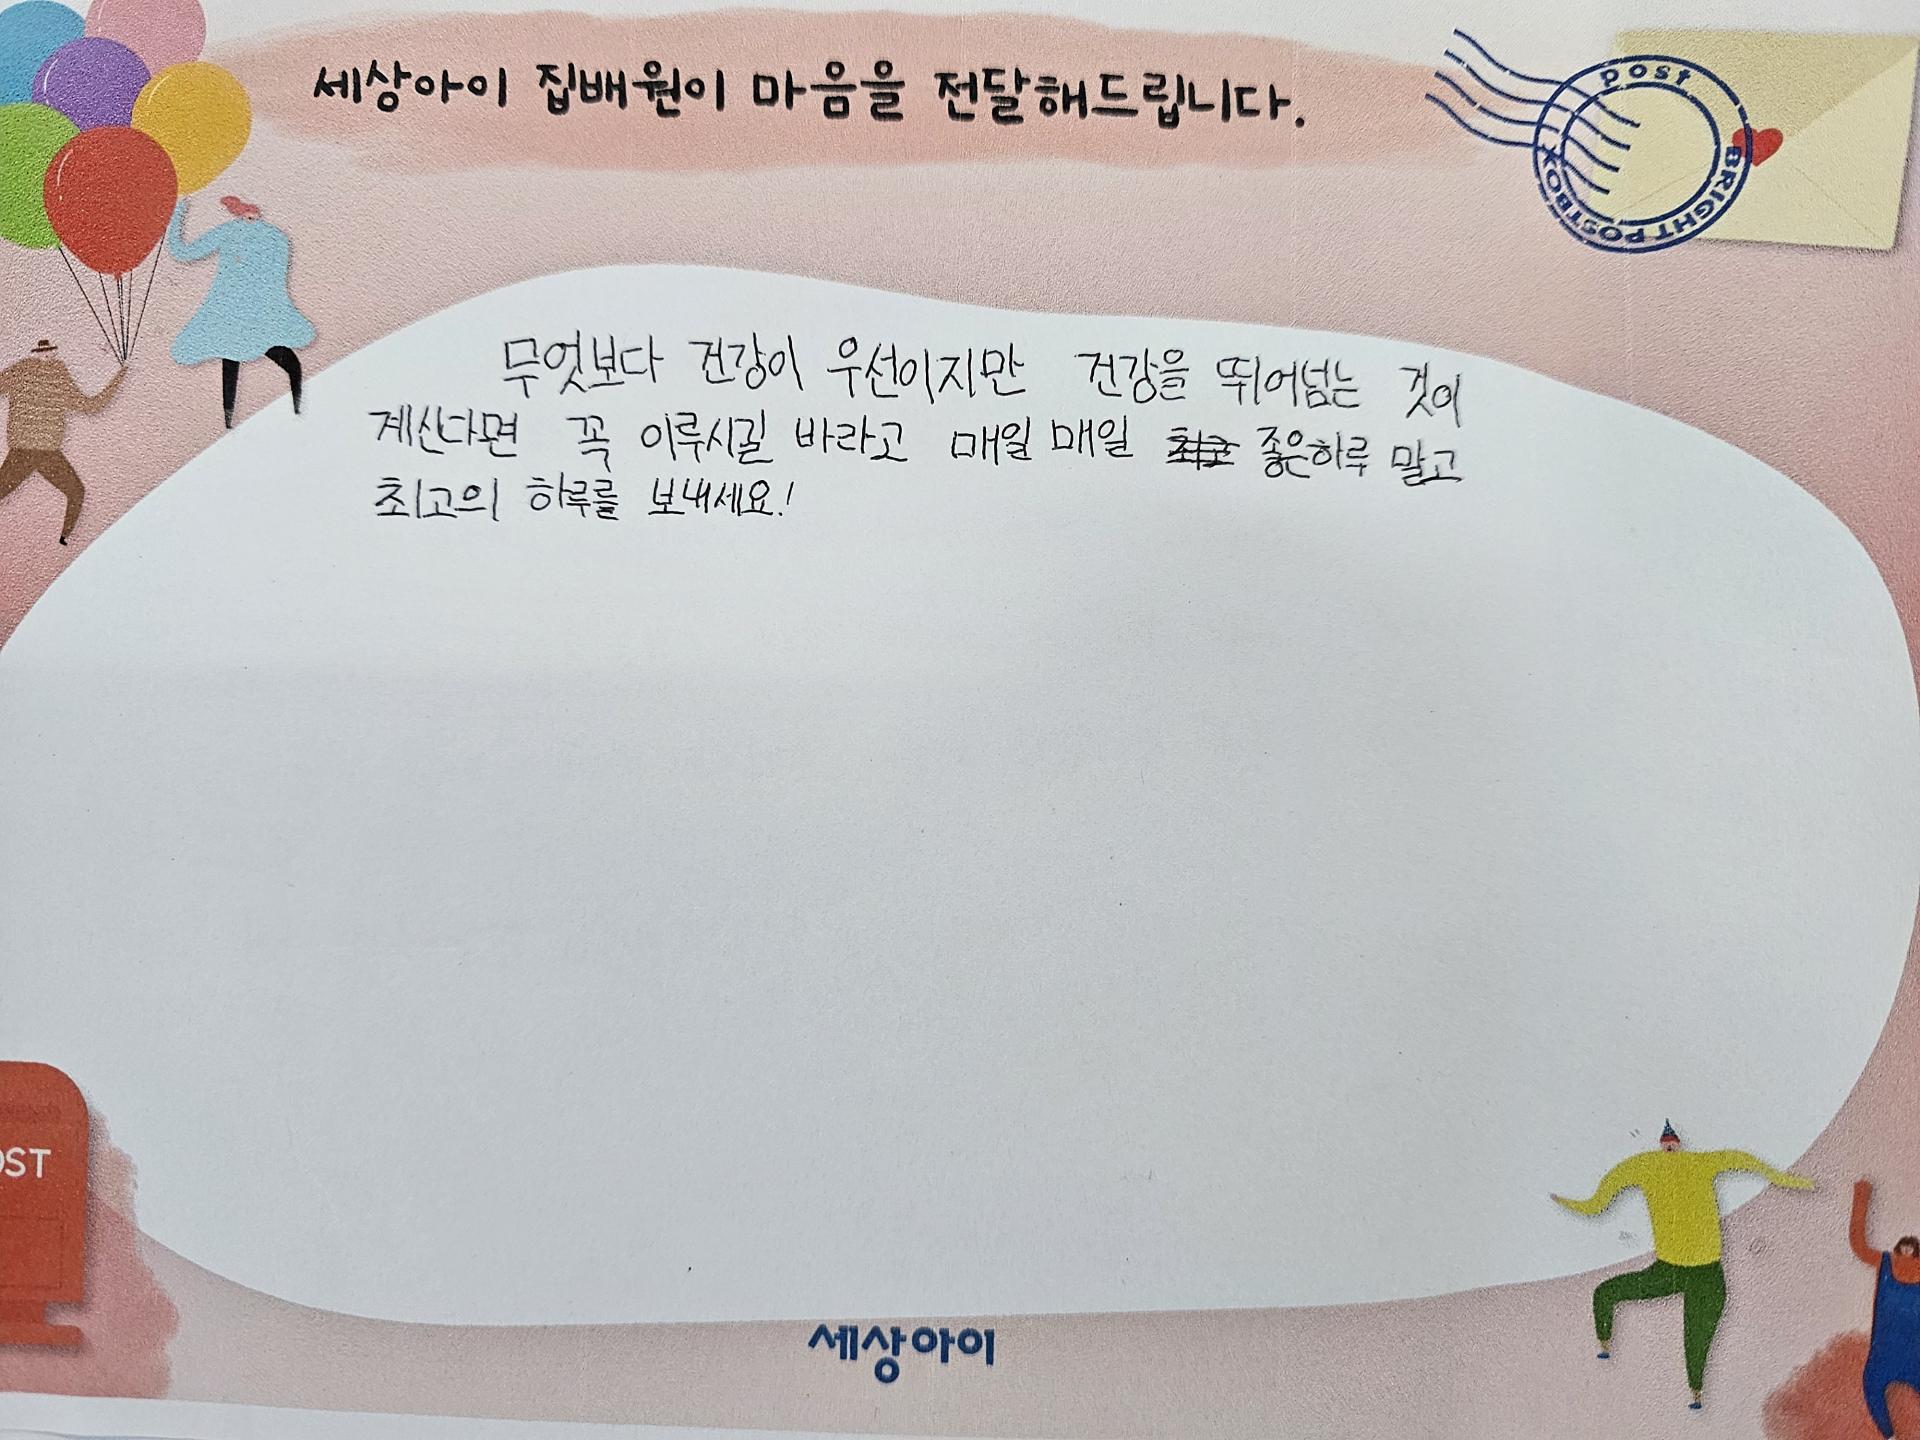 세상아이 집배원이 마음을 전달해드립니다.
post
BRIGHT POSTBOX
무엇보다 건강이 우선이지만 건강을 뛰어넘는 것이
계신다면 꼭 이루시길 바라고 매일 매일 좋은하루 말고
최고의 하루를 보내세요!
OST
세상아이